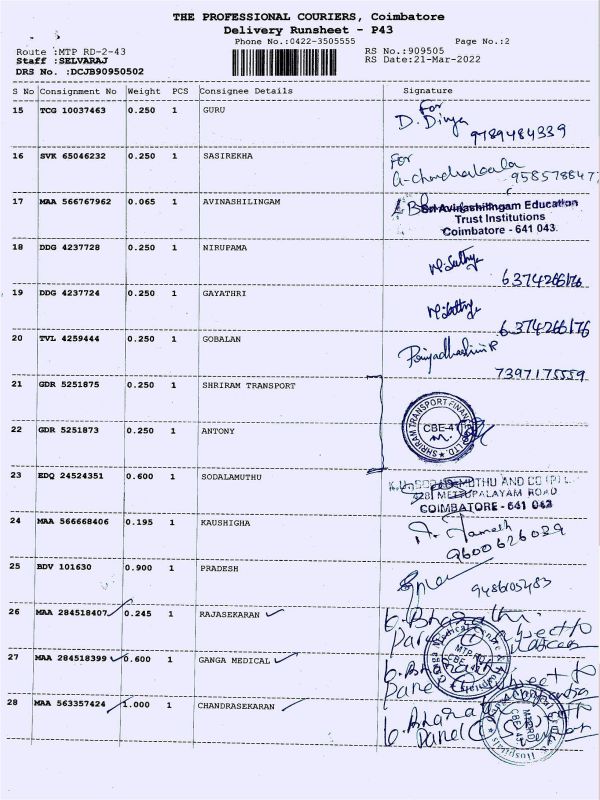 THE PROFESSIONAL COURIERS, Coimbatore
Delivery Runsheet - P43
Phone No.:0422-3505555 Page No.:2
Route :MTP RD-2-43 RS No.:909505
Staff :SELVARAJ RS Date:21-Mar-2022
DRS No. :DCJB90950502
S No Consignment No Weight PCS Consignee Details Signature
15 TCG 10037463 0.250 1 GURU For
D. Divya 9789484339
16 SVK 65046232 0.250 1 SASIREKHA For
17 MAA 566767962 0.065 1 AVINASHILINGAM Sri Avinashilingam Education
Trust Institutions
Coimbatore - 641 043.
18 DDG 4237728 0.250 1 NIRUPAMA
6374266176
19 DDG 4237724 0.250 1 GAYATHRI
6374266176
20 TVL 4259444 0.250 1 GOBALAN Priyadharshini R
7397175559
21 GDR 5251875 0.250 1 SHRIRAM TRANSPORT
SHRIRAM TRANSPORT FINANCE
CBE-41
22 GDR 5251873 0.250 1 ANTONY
23 EDQ 24524351 0.600 1 SODALAMUTHU MUTHU AND CO (P)
METTUPALAYAM ROAD
COIMBATORE - 641 043
24 MAA 566668406 0.195 1 KAUSHIGHA
9600626029
25 BDV 101630 0.900 1 PRADESH
26 MAA 284518407 0.245 1 RAJASEKARAN G. Bharathi
27 MAA 284518399 0.600 1 GANGA MEDICAL
Ganga Medical Centre &
MTP RD
CBE-43
28 MAA 563357424 1.000 1 CHANDRASEKARAN